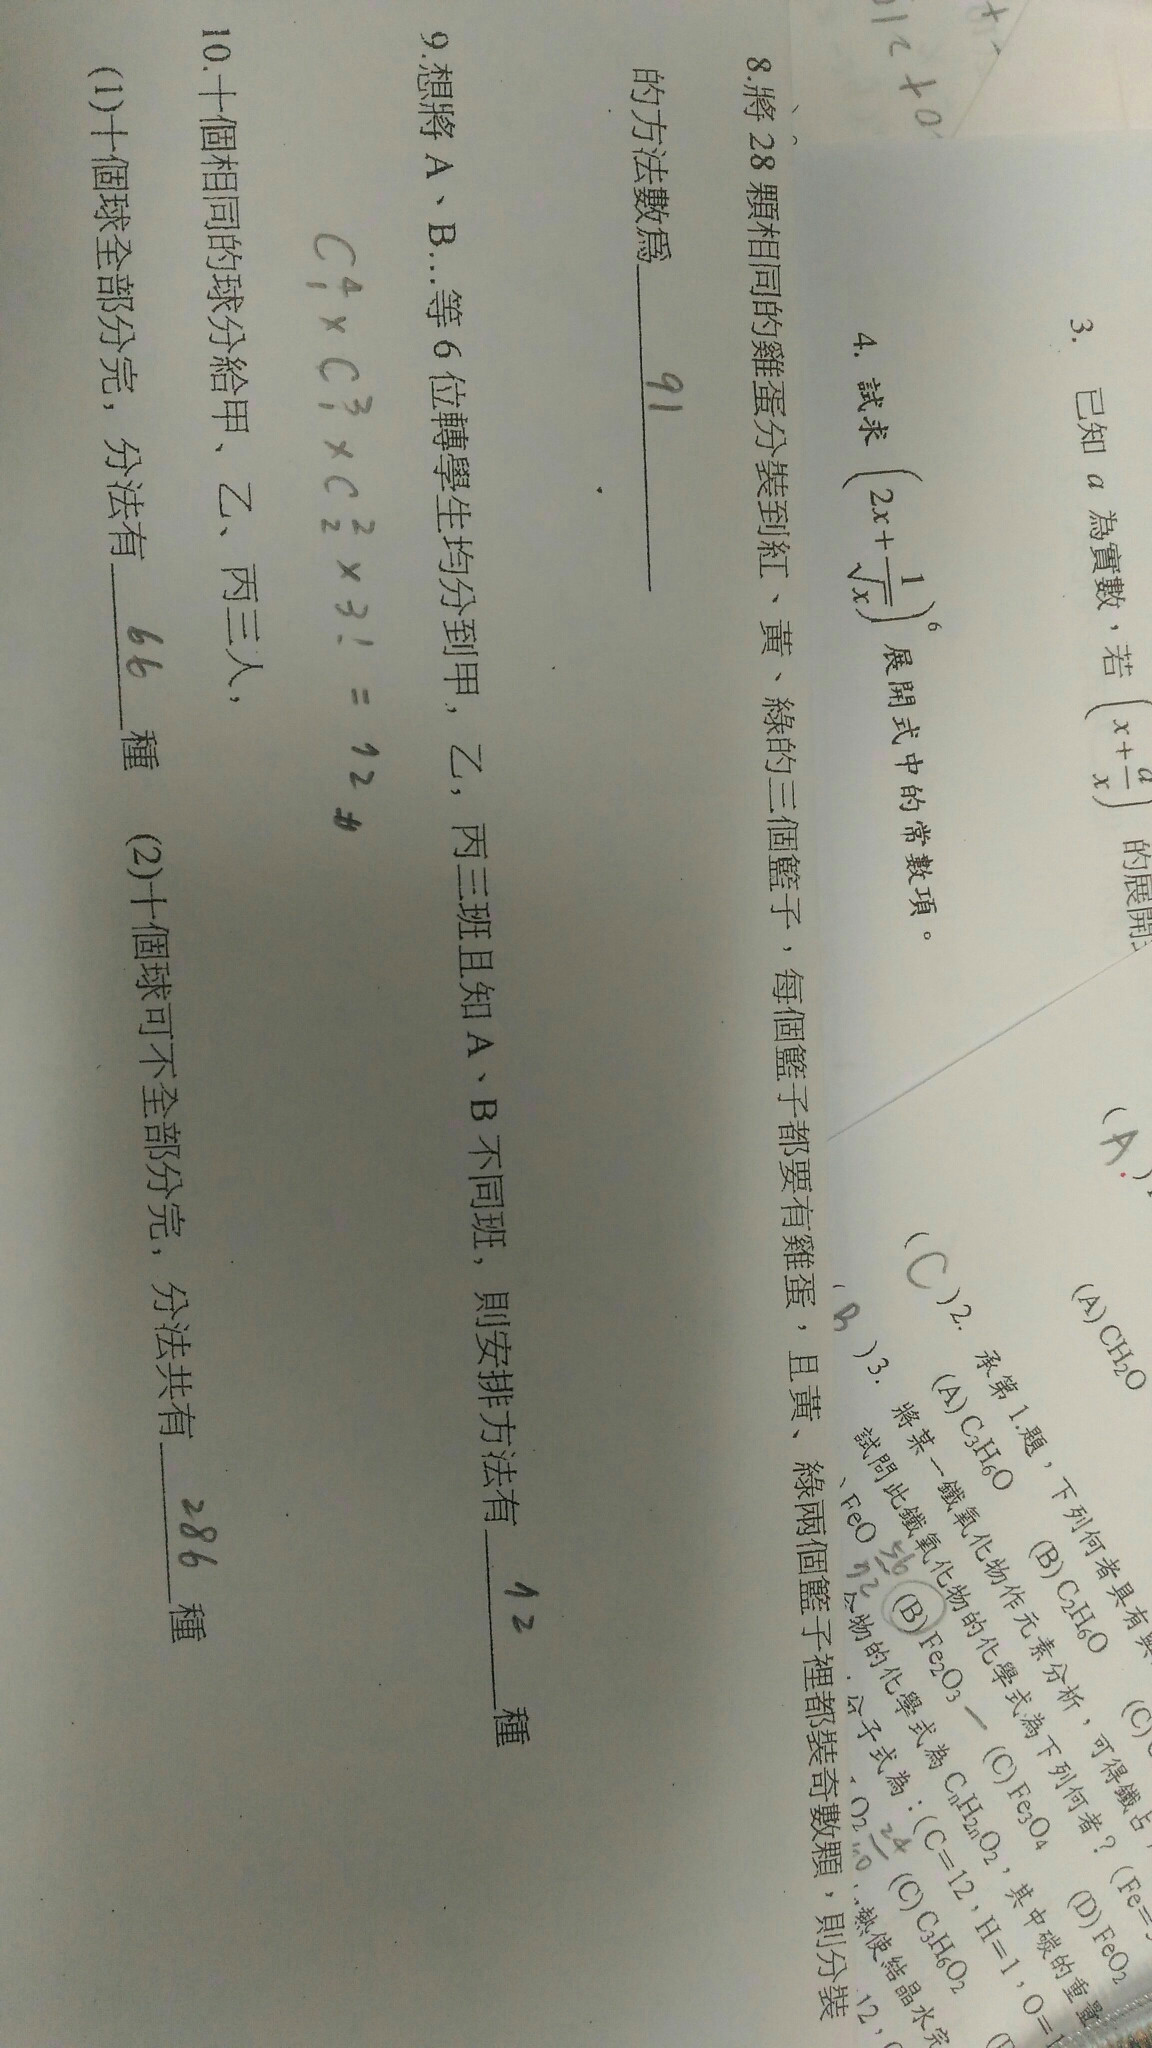 3. 已知 a 為實數，若 (x+a/x) 的展開
4. 試求 (2x+1/√x)⁶ 展開式中的常數項。
(A)
(A) CH₂O
(C)2. 承第1.題，下列何者具有
(A) C₃H₆O (B) C₂H₆O (C)
(B)3. 將某一鐵氧化物作元素分析，可得鐵占
試問此鐵氧化物的化學式為下列何者？(Fe=
FeO (B) Fe₂O₃ (C) Fe₃O₄ (D) FeO₂
56
72
物的化學式為 CnH2nO₂，其中碳的重量
分子式為：(C=12，H=1，O=
O₂ (C) C₃H₆O₂
24
熱使結晶水完
12，
8.將 28 顆相同的雞蛋分裝到紅、黃、綠的三個籃子，每個籃子都要有雞蛋，且黃、綠兩個籃子裡都裝奇數顆，則分裝
的方法數為 91
9.想將 A、B…等 6 位轉學生均分到甲，乙，丙三班且知 A、B 不同班，則安排方法有 72 種
C⁴₁×C³₁×C²₂×3! = 72 #
10.十個相同的球分給甲、乙、丙三人，
(1)十個球全部分完，分法有 66 種 (2)十個球可不全部分完，分法共有 286 種